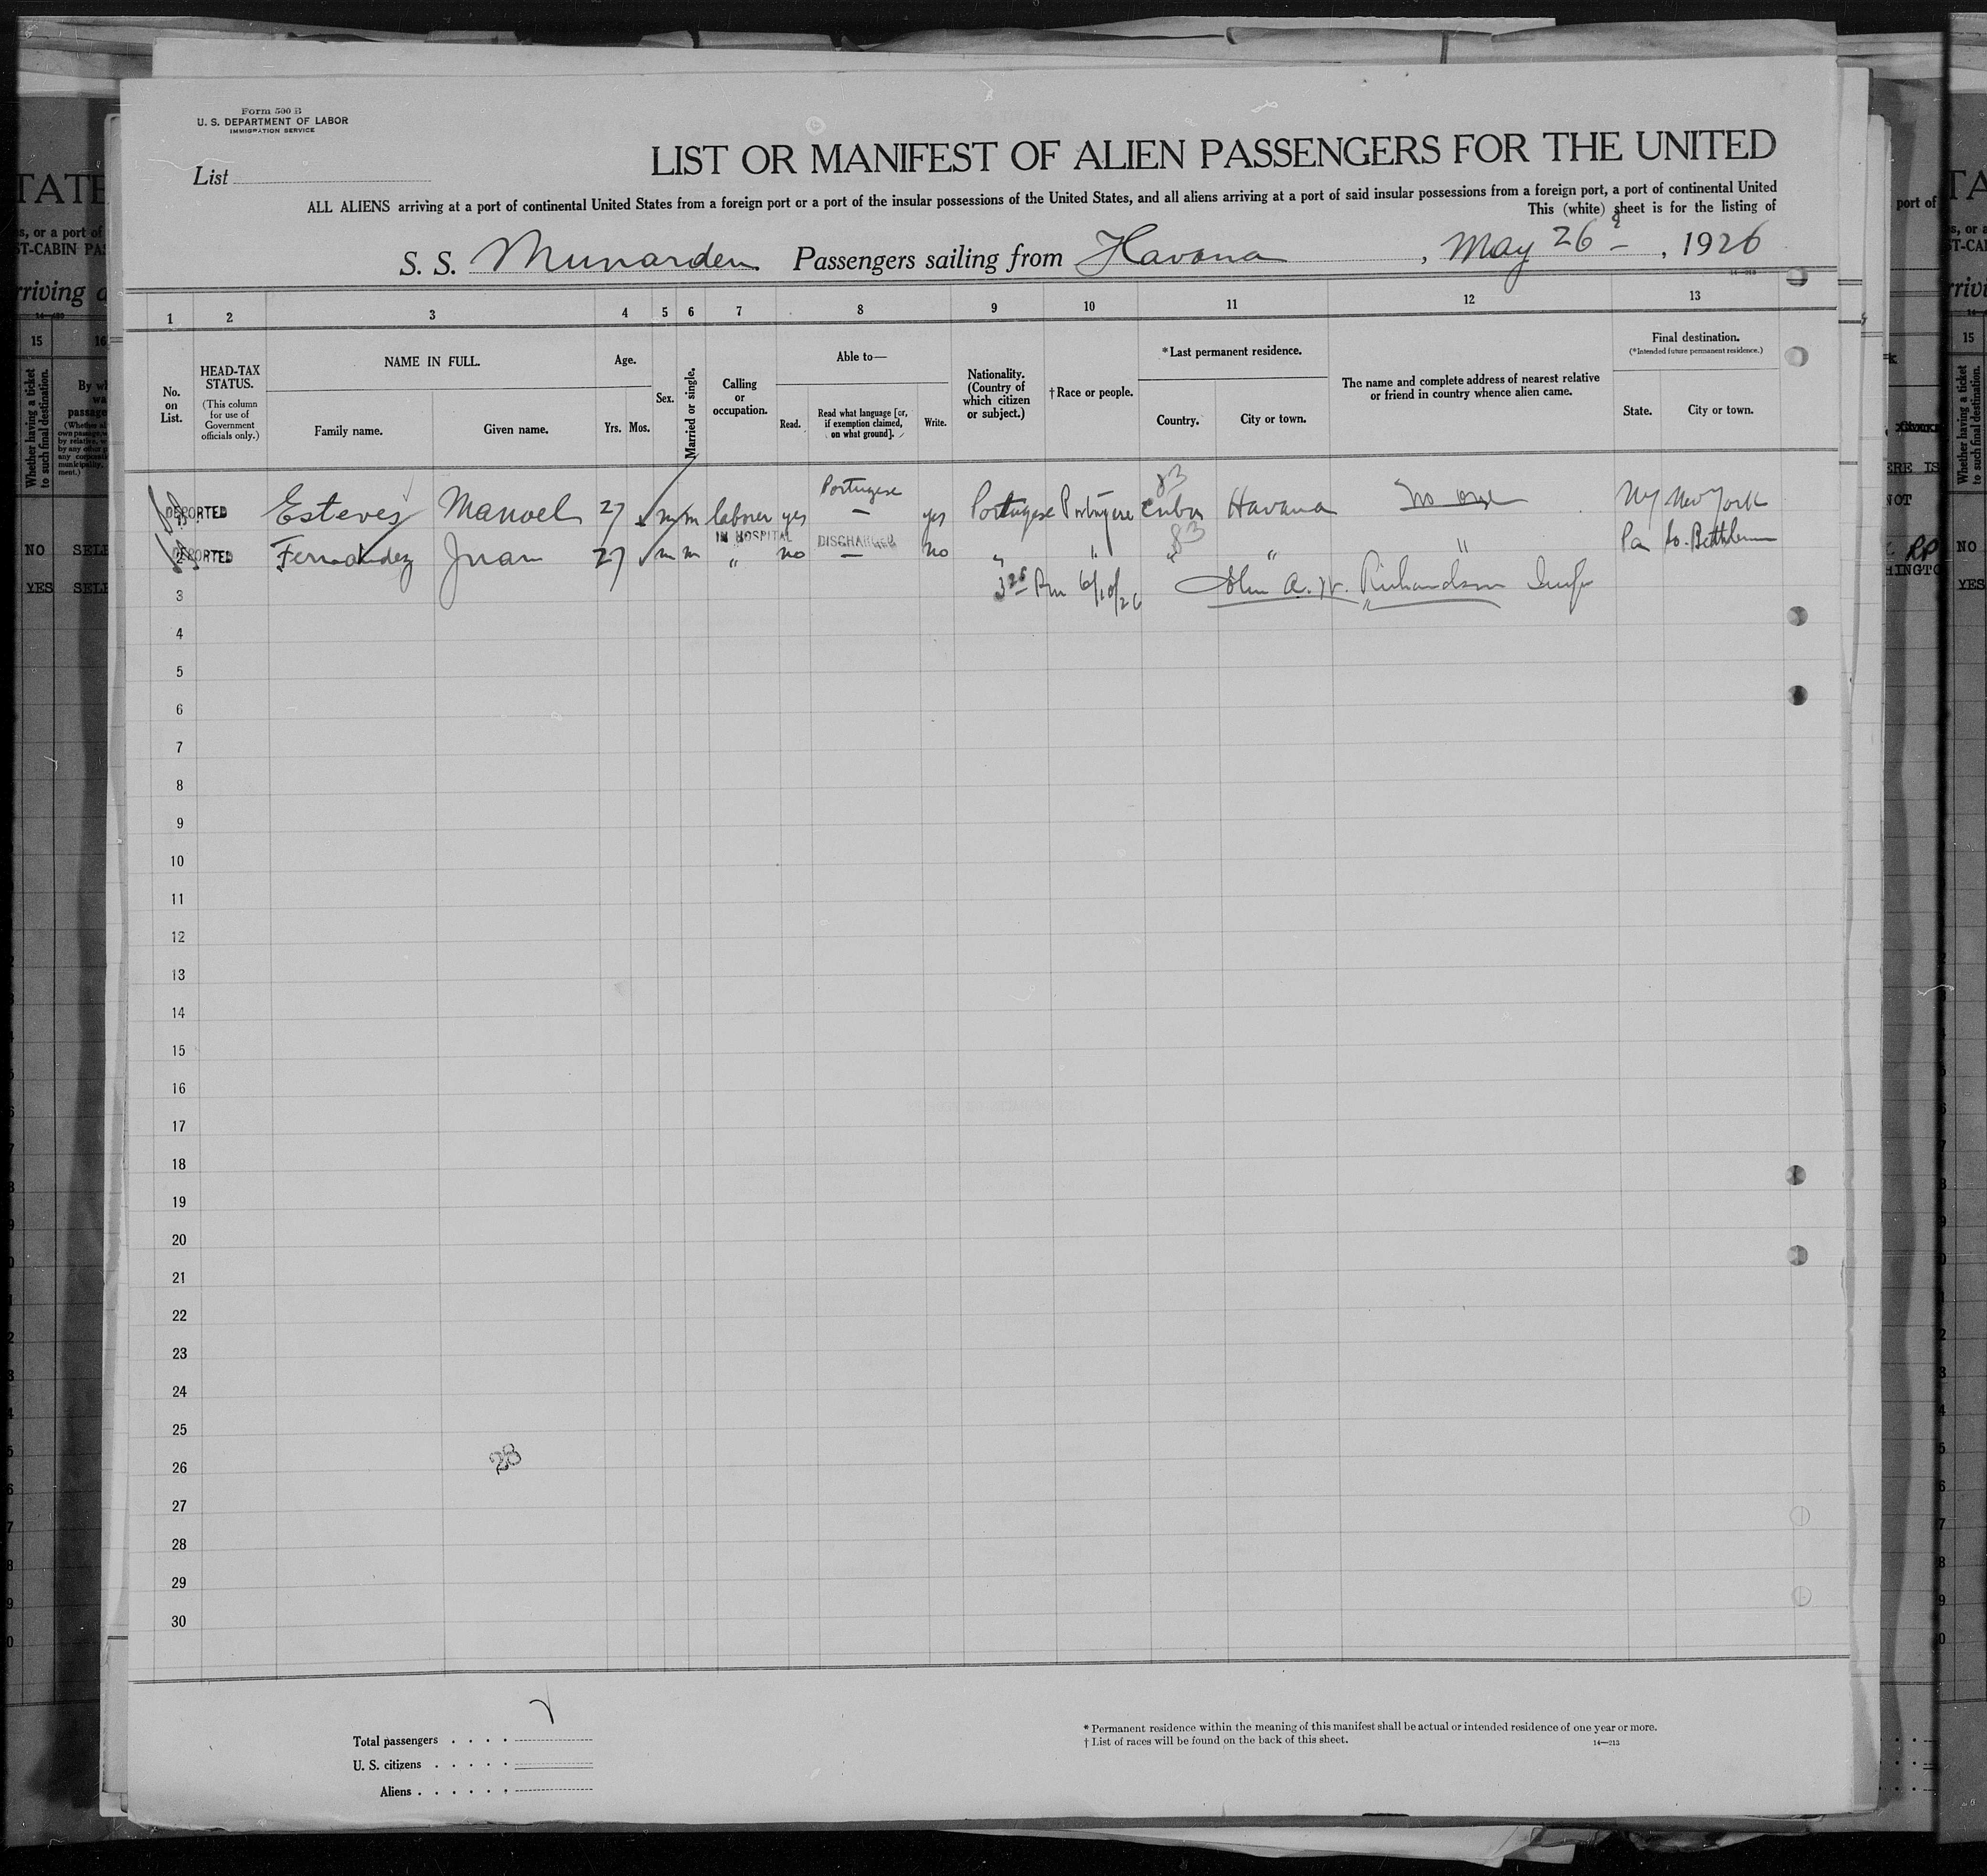 Form 500 B
U. S. DEPARTMENT OF LABOR
IMMIGRATION SERVICE
List
LIST OR MANIFEST OF ALIEN PASSENGERS FOR THE UNITED
ALL ALIENS arriving at a port of continental United States from a foreign port or a port of the insular possessions of the United States, and all aliens arriving at a port of said insular possessions from a foreign port, a port of continental United
This (white) sheet is for the listing of
S. S. Munorden Passengers sailing from Havana, May 26, 1926
1 2 3 4 5 6 7 8 9 10 11 12 13
No. on List.
HEAD-TAX STATUS.
(This column for use of Government officials only.)
NAME IN FULL.
Family name. Given name.
Age.
Yrs. Mos.
Sex.
Married or single.
Calling or occupation.
Able to—
Read. Read what language [or, if exemption claimed, on what ground]. Write.
Nationality. (Country of which citizen or subject.)
† Race or people.
* Last permanent residence.
Country. City or town.
The name and complete address of nearest relative or friend in country whence alien came.
Final destination.
(* Intended future permanent residence.)
State. City or town.
83
DEPORTED Esteves Manoel 27 m m laborer yes Portugese — yes Portugese Portugese Cuba Havana no one NY New York
IN HOSPITAL DISCHARGED 83
DEPORTED Fernandez Juan 27 m m " no — no " " " " " Pa So. Bethlehem
3 25 Pm 6/10/26 John A. W. Richardson Insp
3
4
5
6
7
8
9
10
11
12
13
14
15
16
17
18
19
20
21
22
23
24
25
26
28
27
28
29
30
Total passengers
U. S. citizens
Aliens
* Permanent residence within the meaning of this manifest shall be actual or intended residence of one year or more.
† List of races will be found on the back of this sheet.
14—213